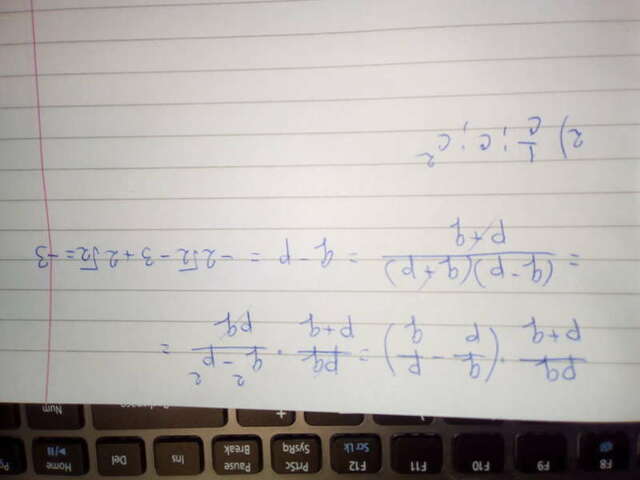 F8 F9 F10 F11 F12 Scr Lk PrtSc SysRq Pause Break Ins Del Home
Num
pq/(p+q) · (q/p - p/q) = pq/(p+q) · (q² - p²)/pq =
= (q-p)(q+p)/(p+q) = q - p = -2√2 - 3 + 2√2 = -3
2) 1/c ; c ; c²